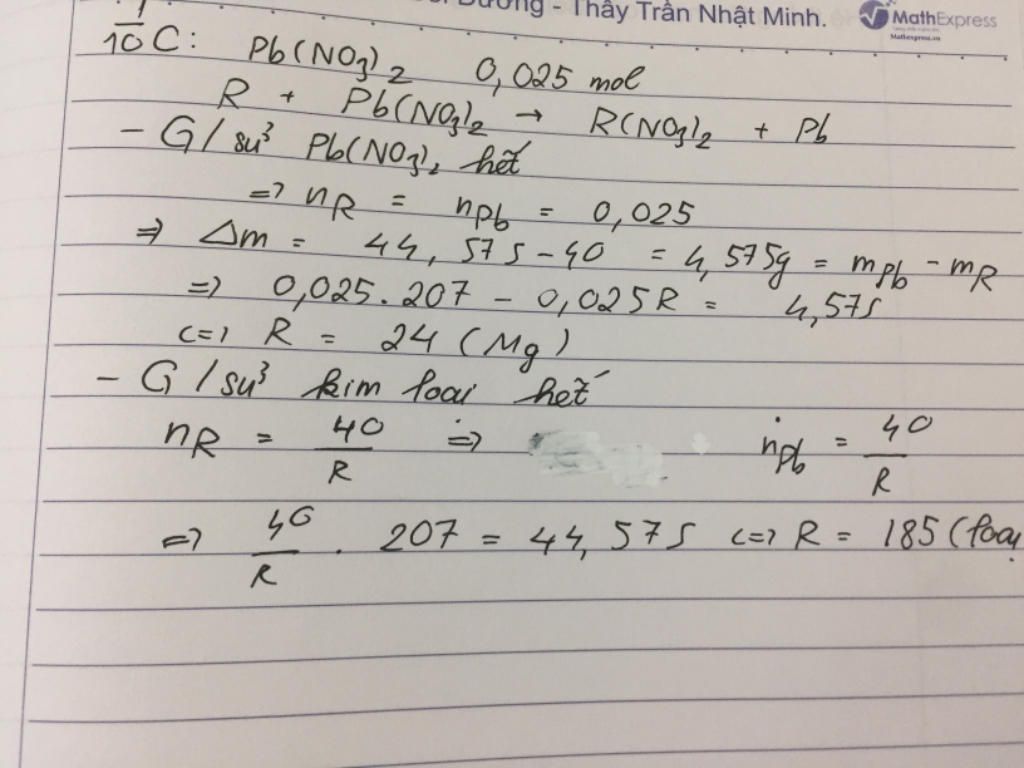 Dương - Thầy Trần Nhật Minh.
MathExpress
Mathexpress.vn
1/10 C: Pb(NO3)2 0,025 mol
R + Pb(NO3)2 → R(NO3)2 + Pb
- G/sử Pb(NO3)2 hết
=> nR = nPb = 0,025
=> Δm = 44,575 - 40 = 4,575g = mPb - mR
=> 0,025.207 - 0,025R = 4,575
<=> R = 24 (Mg)
- G/sử kim loại hết
nR = 40/R => nPb = 40/R
=> 40/R . 207 = 44,575 <=> R = 185 (loại